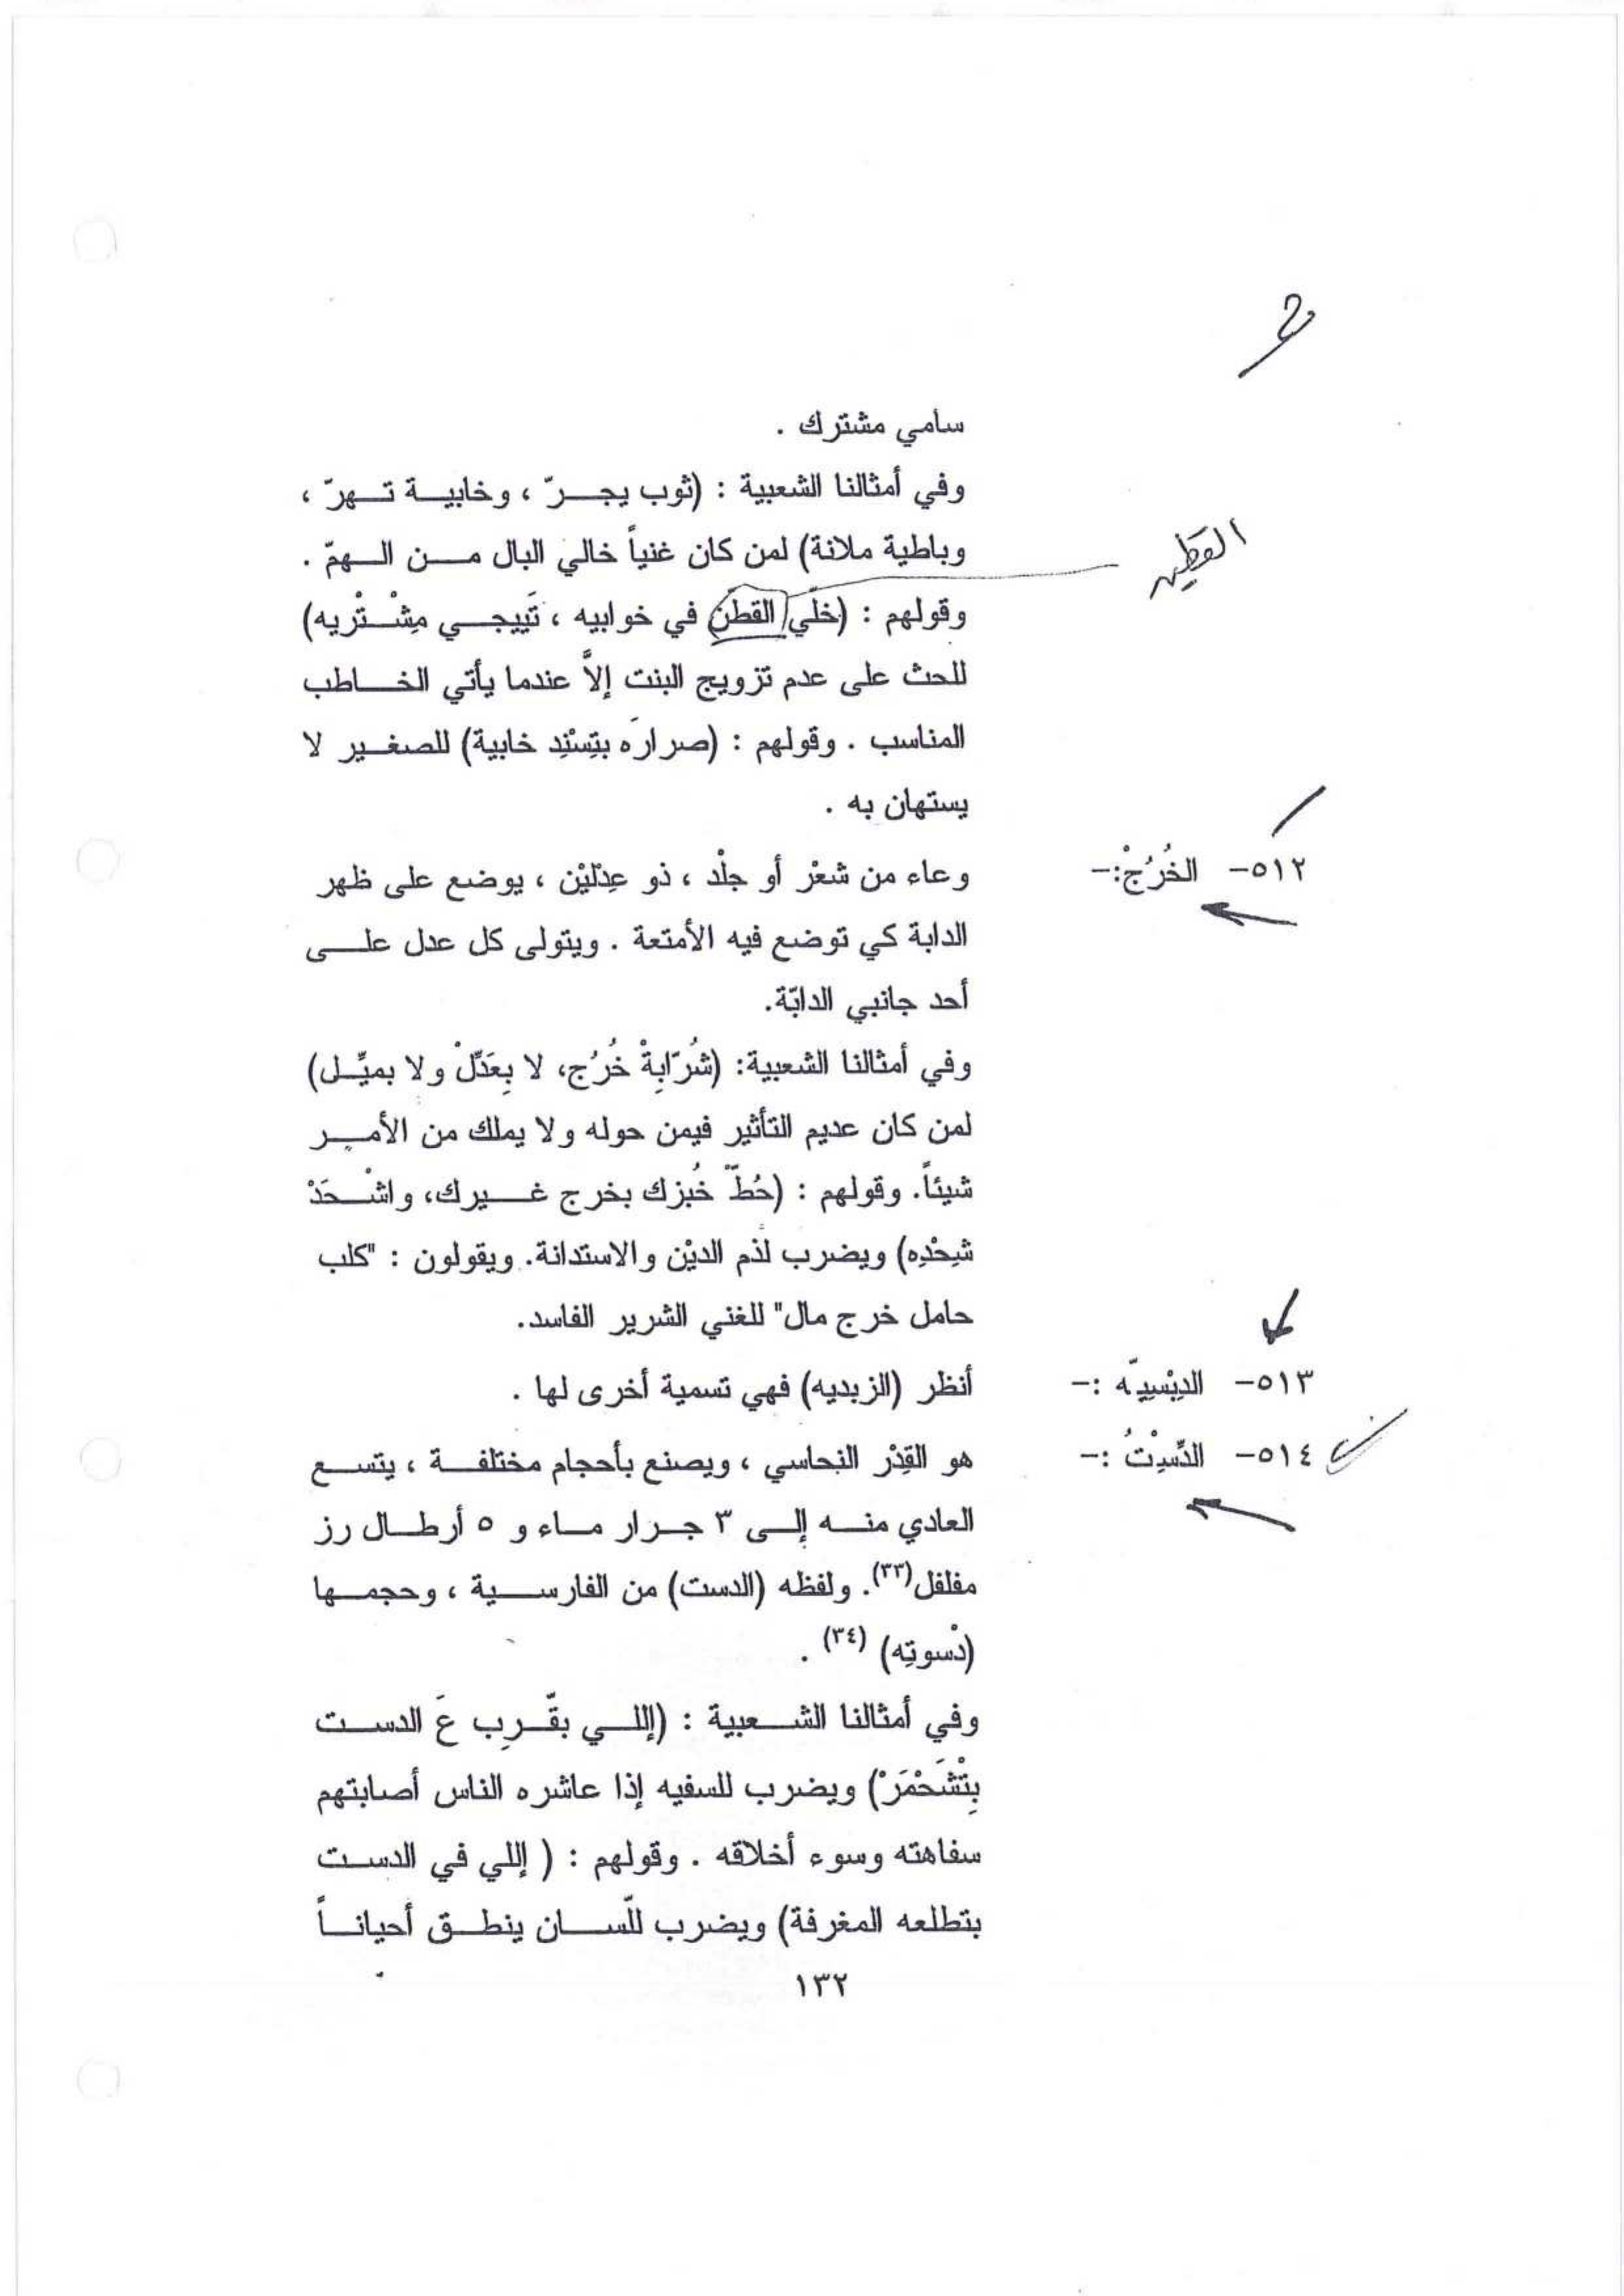 سامي مشترك .
وفي أمثالنا الشعبية : (ثوب يجرّ ، وخابية تهرّ ،
وباطية ملانة) لمن كان غنياً خالي البال من الهمّ .
القطين
وقولهم : (خلّي القطن في خوابيه ، تَييجي مِشْتْريه)
للحث على عدم تزويج البنت إلاَّ عندما يأتي الخاطب
المناسب . وقولهم : (صرارَه بتِسْنِد خابية) للصغير لا
يستهان به .
٥١٢- الخُرُجْ:- وعاء من شعْر أو جلْد ، ذو عِدْلَيْن ، يوضع على ظهر
الدابة كي توضع فيه الأمتعة . ويتولى كل عدل على
أحد جانبي الدابّة.
وفي أمثالنا الشعبية: (شُرّابِةْ خُرُج، لا بِعَدِّلْ ولا بميِّل)
لمن كان عديم التأثير فيمن حوله ولا يملك من الأمر
شيئاً. وقولهم : (حُطّ خُبزك بخرج غيرك، واشْحَدْ
شِحْدِه) ويضرب لذم الديْن والاستدانة. ويقولون : "كلب
حامل خرج مال" للغني الشرير الفاسد.
٥١٣- الدِبْسِيّه :- أنظر (الزبديه) فهي تسمية أخرى لها .
٥١٤- الدِّسِتْ :- هو القِدْر النحاسي ، ويصنع بأحجام مختلفة ، يتسع
العادي منه إلى ٣ جرار ماء و ٥ أرطال رز
مفلفل(٣٣). ولفظه (الدست) من الفارسية ، وحجمها
(دْسوتِه) (٣٤) .
وفي أمثالنا الشعبية : (إللي بقّرِب عَ الدست
بِتْشَحْمَرْ) ويضرب للسفيه إذا عاشره الناس أصابتهم
سفاهته وسوء أخلاقه . وقولهم : ( إللي في الدست
بتطلعه المغرفة) ويضرب للّسان ينطق أحياناً
١٣٢